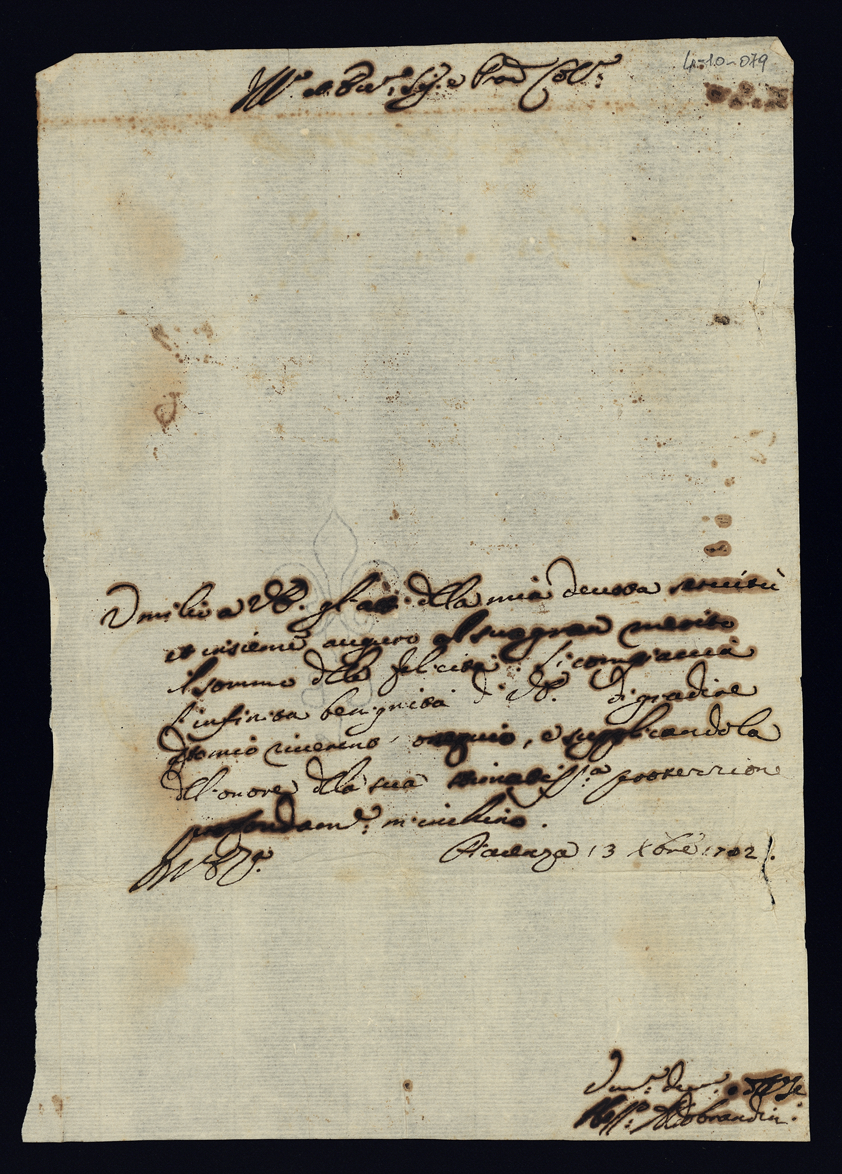 4-10-079
Ill.mo et Ecc.mo Sig.r e Pron Coll.mo
Umilio a V.E. gl'atti della mia devota servitù
et insieme auguro al suo gran merito
il sommo della felicità. Si compiaccia
l'infinita benignità di V.E. di gradire
il mio riverente ossequio, e supplicandola
dell'onore della sua stimatiss.ma protezzione
profondam.te m'inchino.
Piacenza 13 Xbre 1702
Aldobrandini